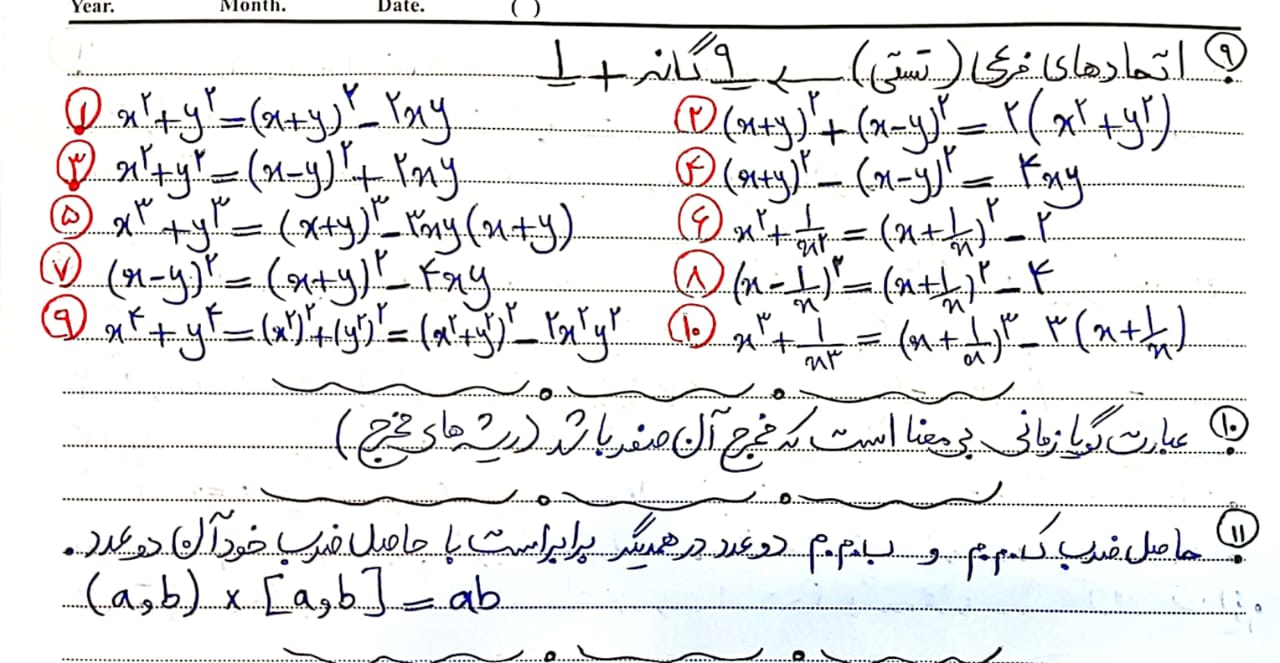 Year. Month. Date. ( )
۹ اتحادهای فرعی (تستی) ← ۹ گانه + ۱
۱ x²+y²=(x+y)²-۲xy ۲ (x+y)²+(x-y)²=۲(x²+y²)
۳ x²+y²=(x-y)²+۲xy ۴ (x+y)²-(x-y)²=۴xy
۵ x³+y³=(x+y)³-۳xy(x+y) ۶ x²+1/x²=(x+1/x)²-۲
۷ (x-y)²=(x+y)²-۴xy ۸ (x-1/x)²=(x+1/x)²-۴
۹ x⁴+y⁴=(x²)²+(y²)²=(x²+y²)²-۲x²y² ۱۰ x³+1/x³=(x+1/x)³-۳(x+1/x)
۱۰ عبارت گویا زمانی بی معنا است که مخرج آن صفر باشد (ریشه های مخرج)
۱۱ حاصل ضرب ک.م.م و ب.م.م دو عدد در همدیگر برابر است با حاصل ضرب خود آن دو عدد.
(a,b) × [a,b] = ab